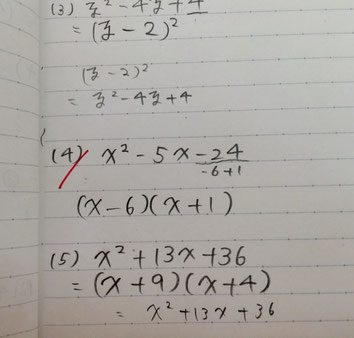 (3) z² - 4z + 4
= (z - 2)²
(z - 2)²
= z² - 4z + 4
(4) x² - 5x - 24
-6+1
(x - 6)(x + 1)
(5) x² + 13x + 36
= (x + 9)(x + 4)
= x² + 13x + 36